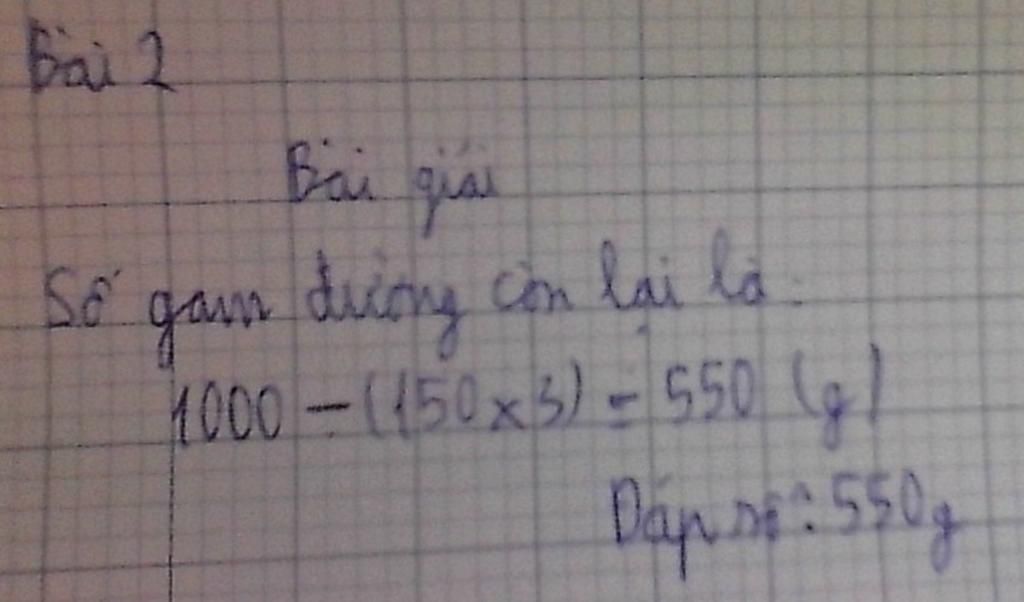 Bài 2
Bài giải
Số gam đường còn lại là:
1000 - (150 x 3) = 550 (g)
Đáp số: 550g